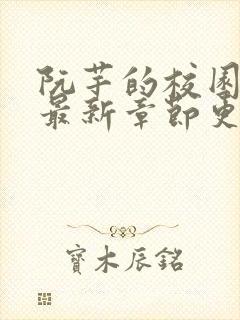 阮芋的校园
最新章节更
寶木辰銘